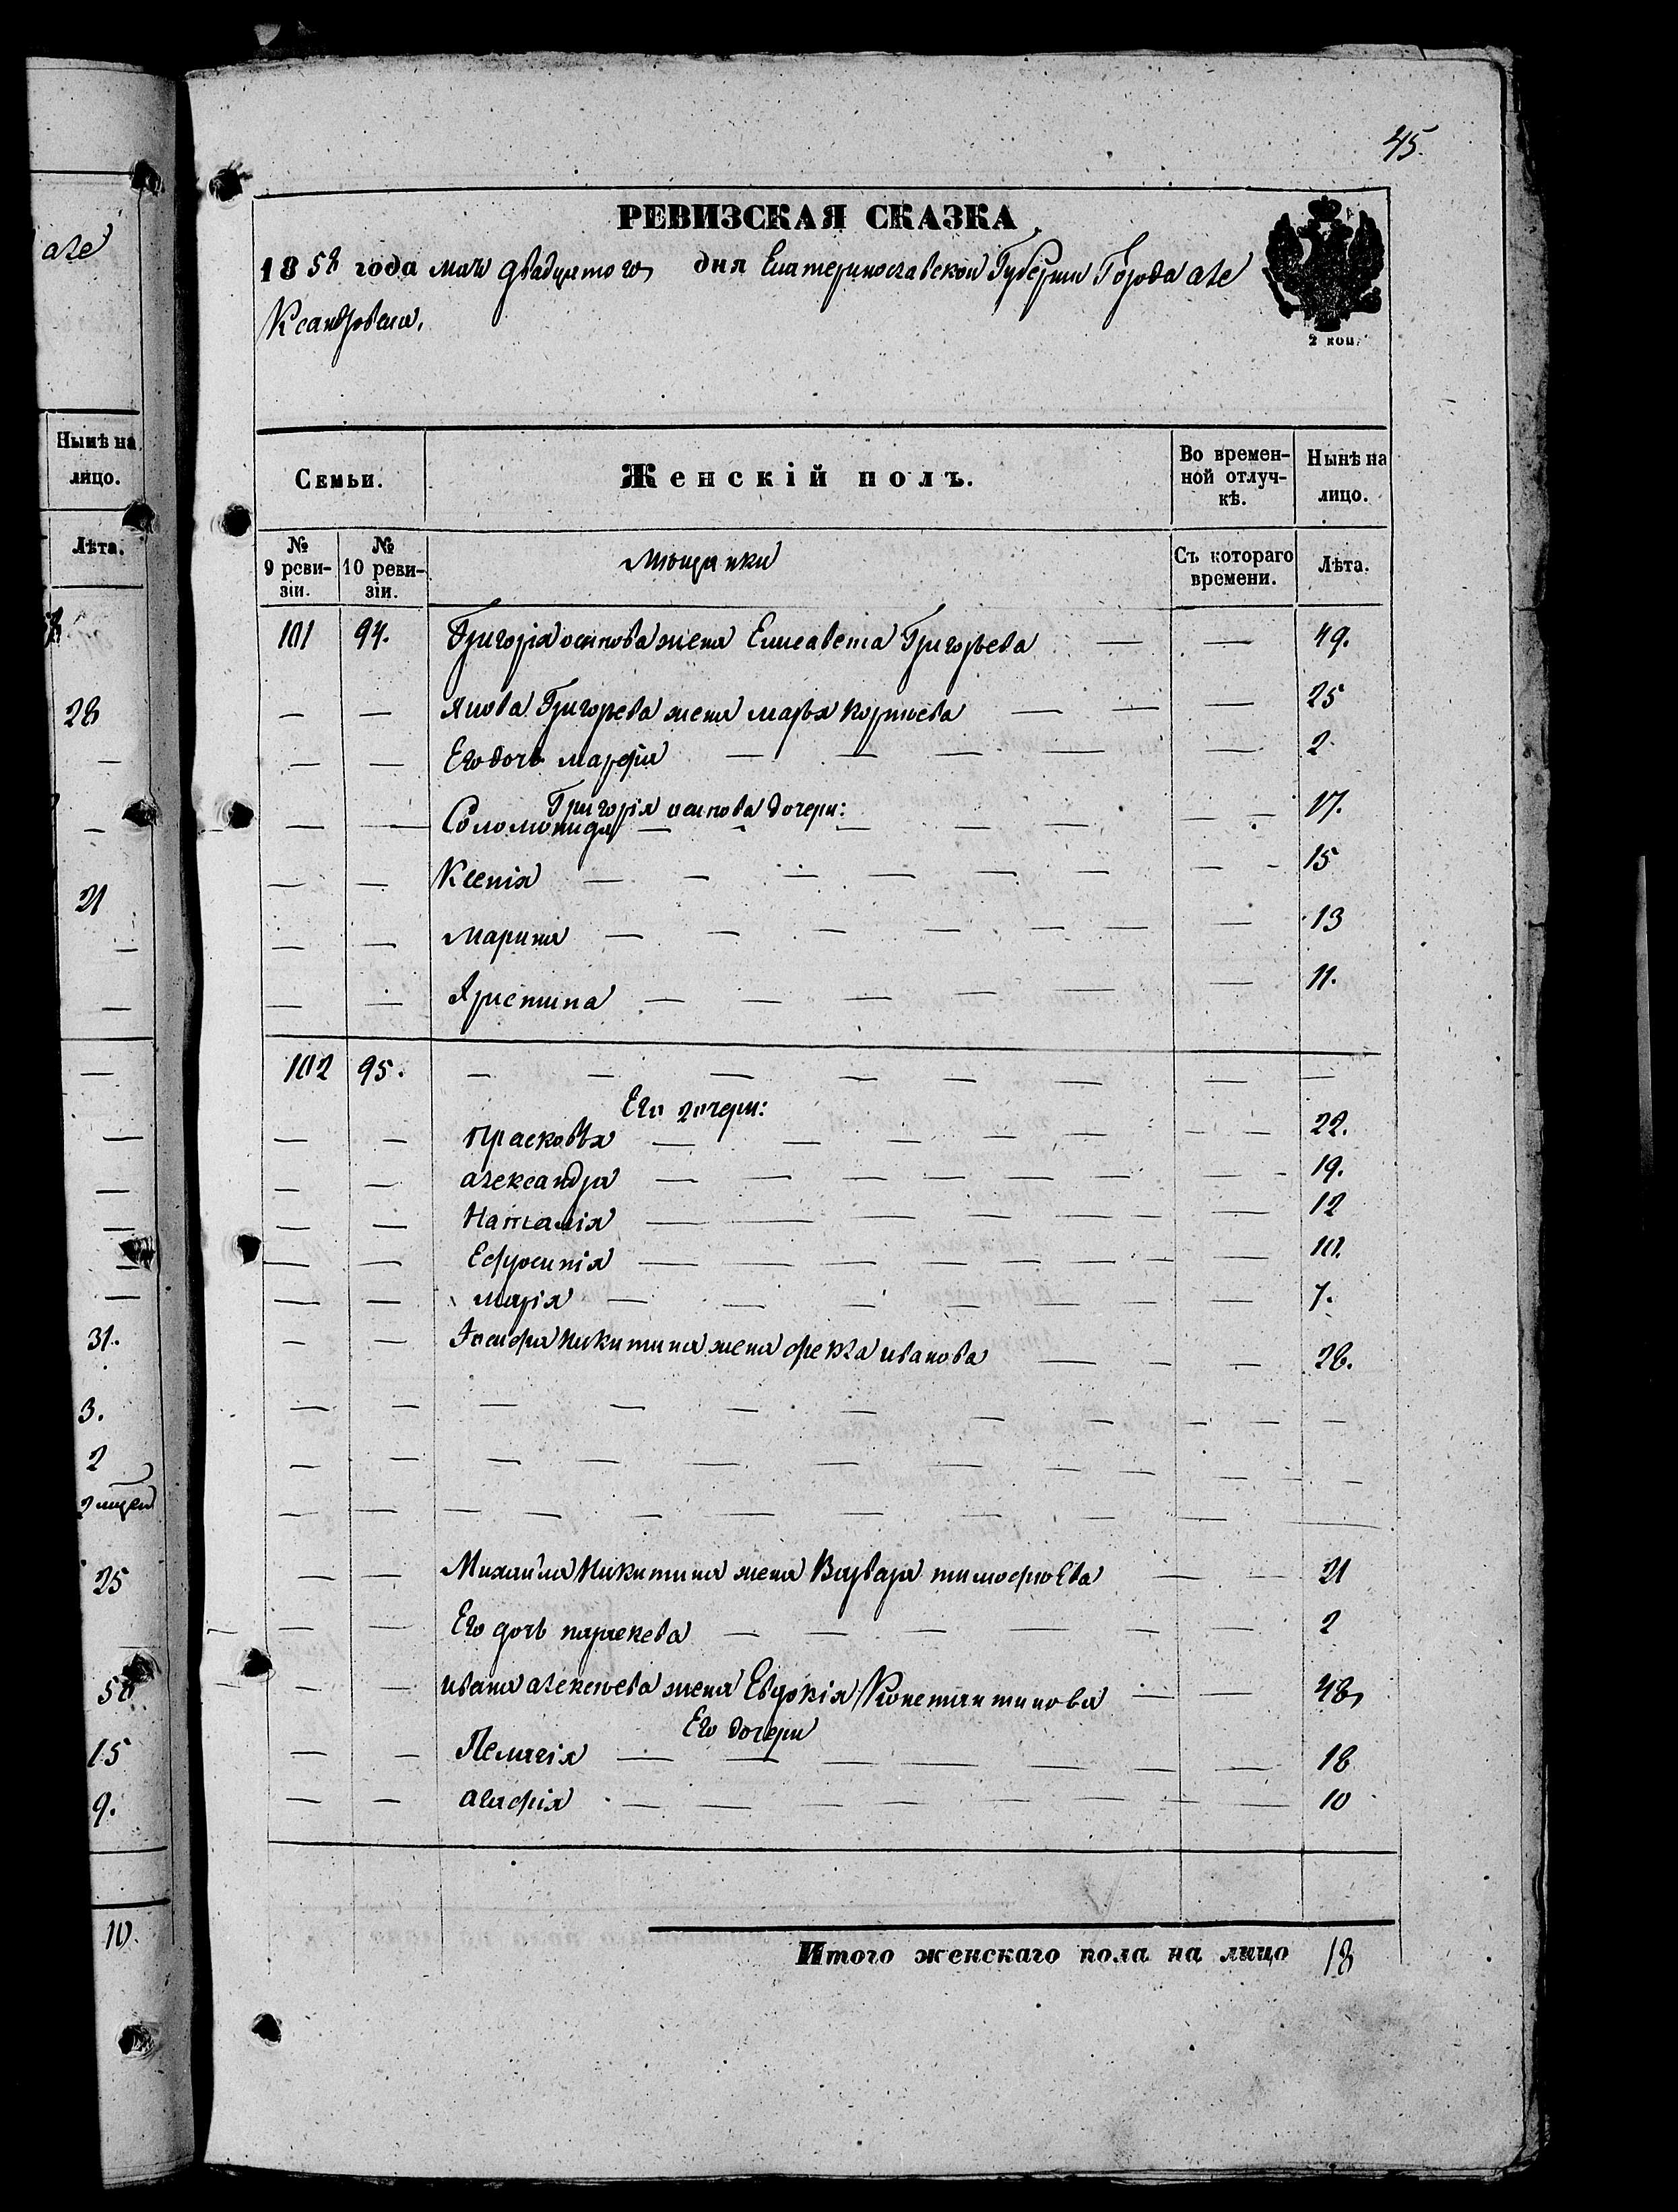 45.
РЕВИЗСКАЯ СКАЗКА
1858 года мая двадцатого дня Екатеринославской Губернии Города Але
ксандровска.
2 коп.
але
Нынѣ на лицо.
Лѣта.
28
21
31.
3.
2
25
50
15
9.
10.
Семьи.
Женскій полъ.
Во времен-
ной отлуч-
кѣ.
Нынѣ на
лицо.
№
9 реви-
зіи.
№
10 реви-
зіи.
мѣщанки
Съ котораго
времени.
Лѣта.
101 94. Григорія осипова жена Елисавета Григорьева — — 49.
— — Якова Григорьева жена марья — — — 25
— — Его дочь марфа — — — — — 2.
Григорія осипова дочери:
— — Соломонида — — — — — — — 17.
— — Ксенія — — — — — — — — 15
— — марина — — — — — — — 13
— — Христина — — — — — — 11.
102 95. — — — — — — — —
Его дочери:
— — Прасковья — — — — — — — 22.
— — александра — — — — — — — — 19.
— — Наталія — — — — — — — 12
— — Ефросинія — — — — — — — 10.
— — марія — — — — — — — 7.
— — Іосифа Никитина жена фекла иванова — — — 26.
— — — — — — — — — — —
— — — — — — — — — — —
— — — — — — — — — — —
— — Михайла Никитина жена Варвара тимофѣева — — 21
— — Его дочь параскева — — — — — — 2
— — ивана алексѣева жена Евдокія Константинова — — 48
Его дочери
— — Пелагія — — — — — — — 18
— — агафія — — — — — — — — 10
Итого женскаго пола на лицо 18